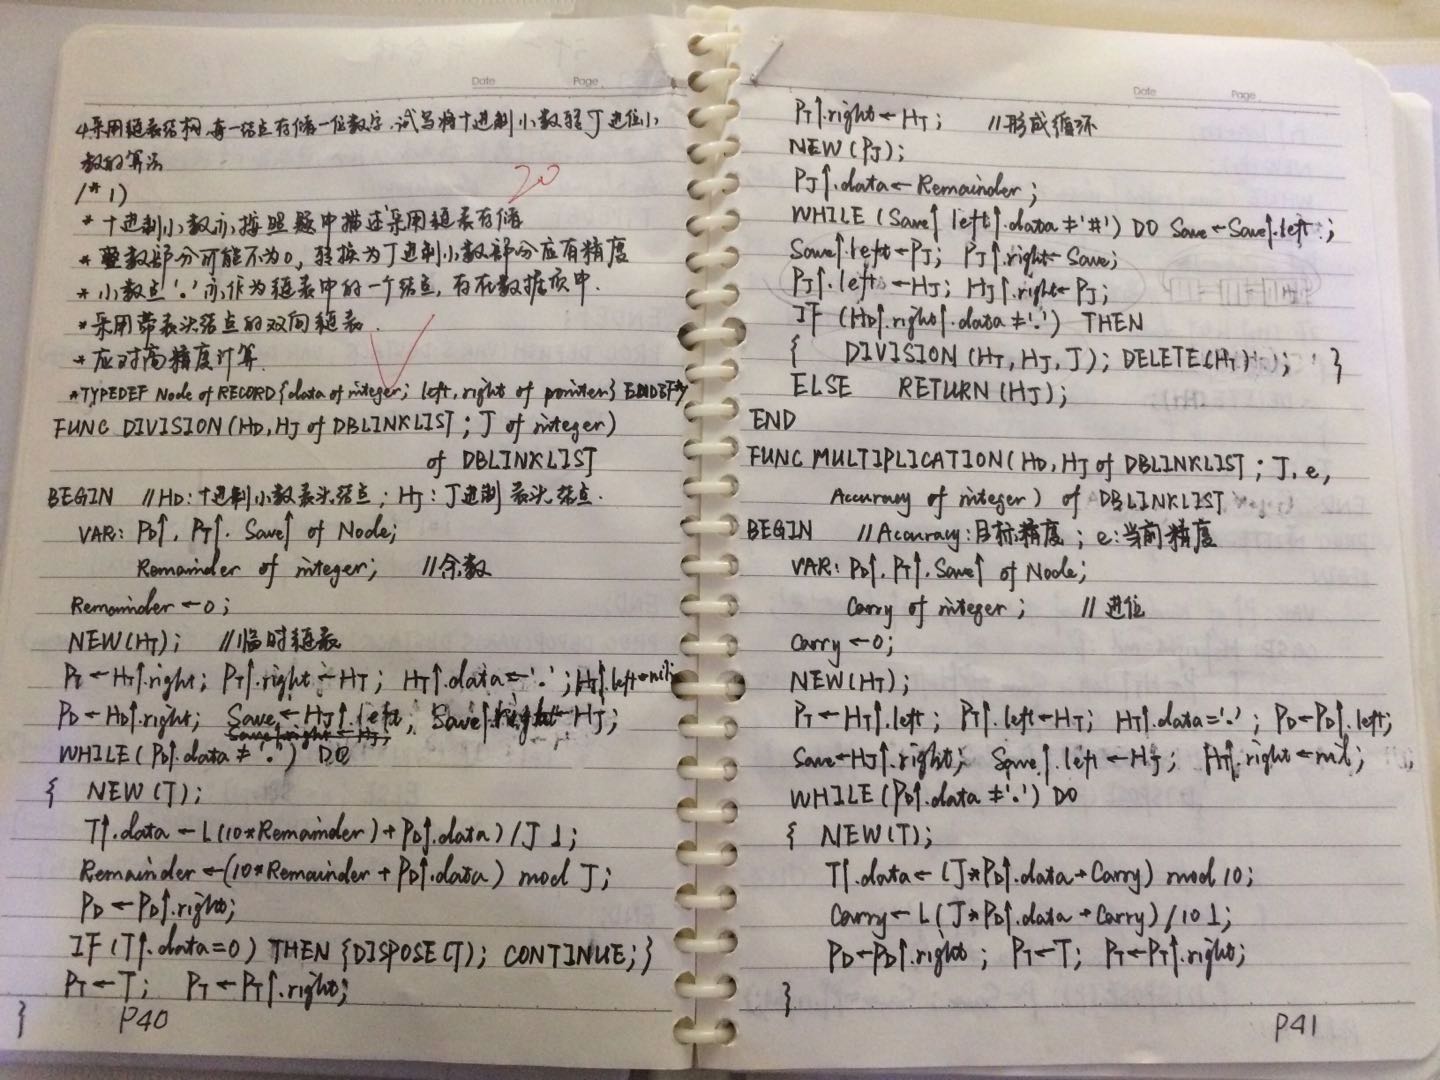 Date Page
4.采用链表结构,每一结点存储一位数字,试写将十进制小数转J进位小
数的算法
20
/* 1)
* 十进制小数亦按照题中描述采用链表存储
* 整数部分可能不为0,转换为J进制小数部分应有精度
* 小数点'.'亦作为链表中的一个结点,存在数据项中.
* 采用带表头结点的双向链表.
* 应对高精度计算.
*TYPEDEF Node of RECORD{data of integer; left, right of pointer} ENDDEF*/
FUNC DIVISION(HD, HJ of DBLINKLIST; J of integer)
of DBLINKLIST
BEGIN //HD:十进制小数表头结点; HJ:J进制表头结点.
VAR: PD↑, PT↑, Save↑ of Node;
Remainder of integer; //余数
Remainder←0;
NEW(HT); //临时链表
PT←HT↑.right; PT↑.right←HT; HT↑.data←'.'; HT↑.left←nil;
PD←HD↑.right; Save←HJ↑.left; Save↑.right←HJ;
WHILE(PD↑.data≠'.') DO
{ NEW(T);
T↑.data←⌊(10*Remainder)+PD↑.data)/J⌋;
Remainder←(10*Remainder+PD↑.data) mod J;
PD←PD↑.right;
IF(T↑.data=0) THEN {DISPOSE(T); CONTINUE;}
PT←T; PT←PT↑.right;
}
P40
Date Page
PT↑.right←HT; //形成循环
NEW(PJ);
PJ↑.data←Remainder;
WHILE(Save↑.left↑.data≠'#') DO Save←Save↑.left;
Save↑.left←PJ; PJ↑.right←Save;
PJ↑.left←HJ; HJ↑.right←PJ;
IF (HD↑.right↑.data≠'.') THEN
{ DIVISION(HT, HJ, J); DELETE(HT); }
ELSE RETURN(HJ);
END
FUNC MULTIPLICATION(HD, HJ of DBLINKLIST; J, e,
Accuracy of integer) of DBLINKLIST
BEGIN //Accuracy:目标精度; e:当前精度
VAR: PD↑, PT↑, Save↑ of Node;
Carry of integer; //进位
Carry←0;
NEW(HT);
PT←HT↑.left; PT↑.left←HT; HT↑.data='.'; PD←PD↑.left;
Save←HJ↑.right; Save↑.left←HJ; HT↑.right←nil;
WHILE(PD↑.data≠'.') DO
{ NEW(T);
T↑.data←(J*PD↑.data+Carry) mod 10;
Carry←⌊(J*PD↑.data+Carry)/10⌋;
PD←PD↑.right; PT←T; PT←PT↑.right;
}
P41